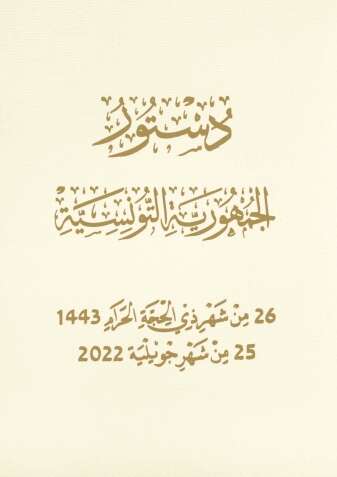 دُسْتُورُ
الجُمْهُورِيَّةِ التُّونِسِيَّةِ
26 مِنْ شَهْرِ ذِي الْحِجَّةِ الْحَرَامِ 1443
25 مِنْ شَهْرِ جْوِيلْيَة 2022